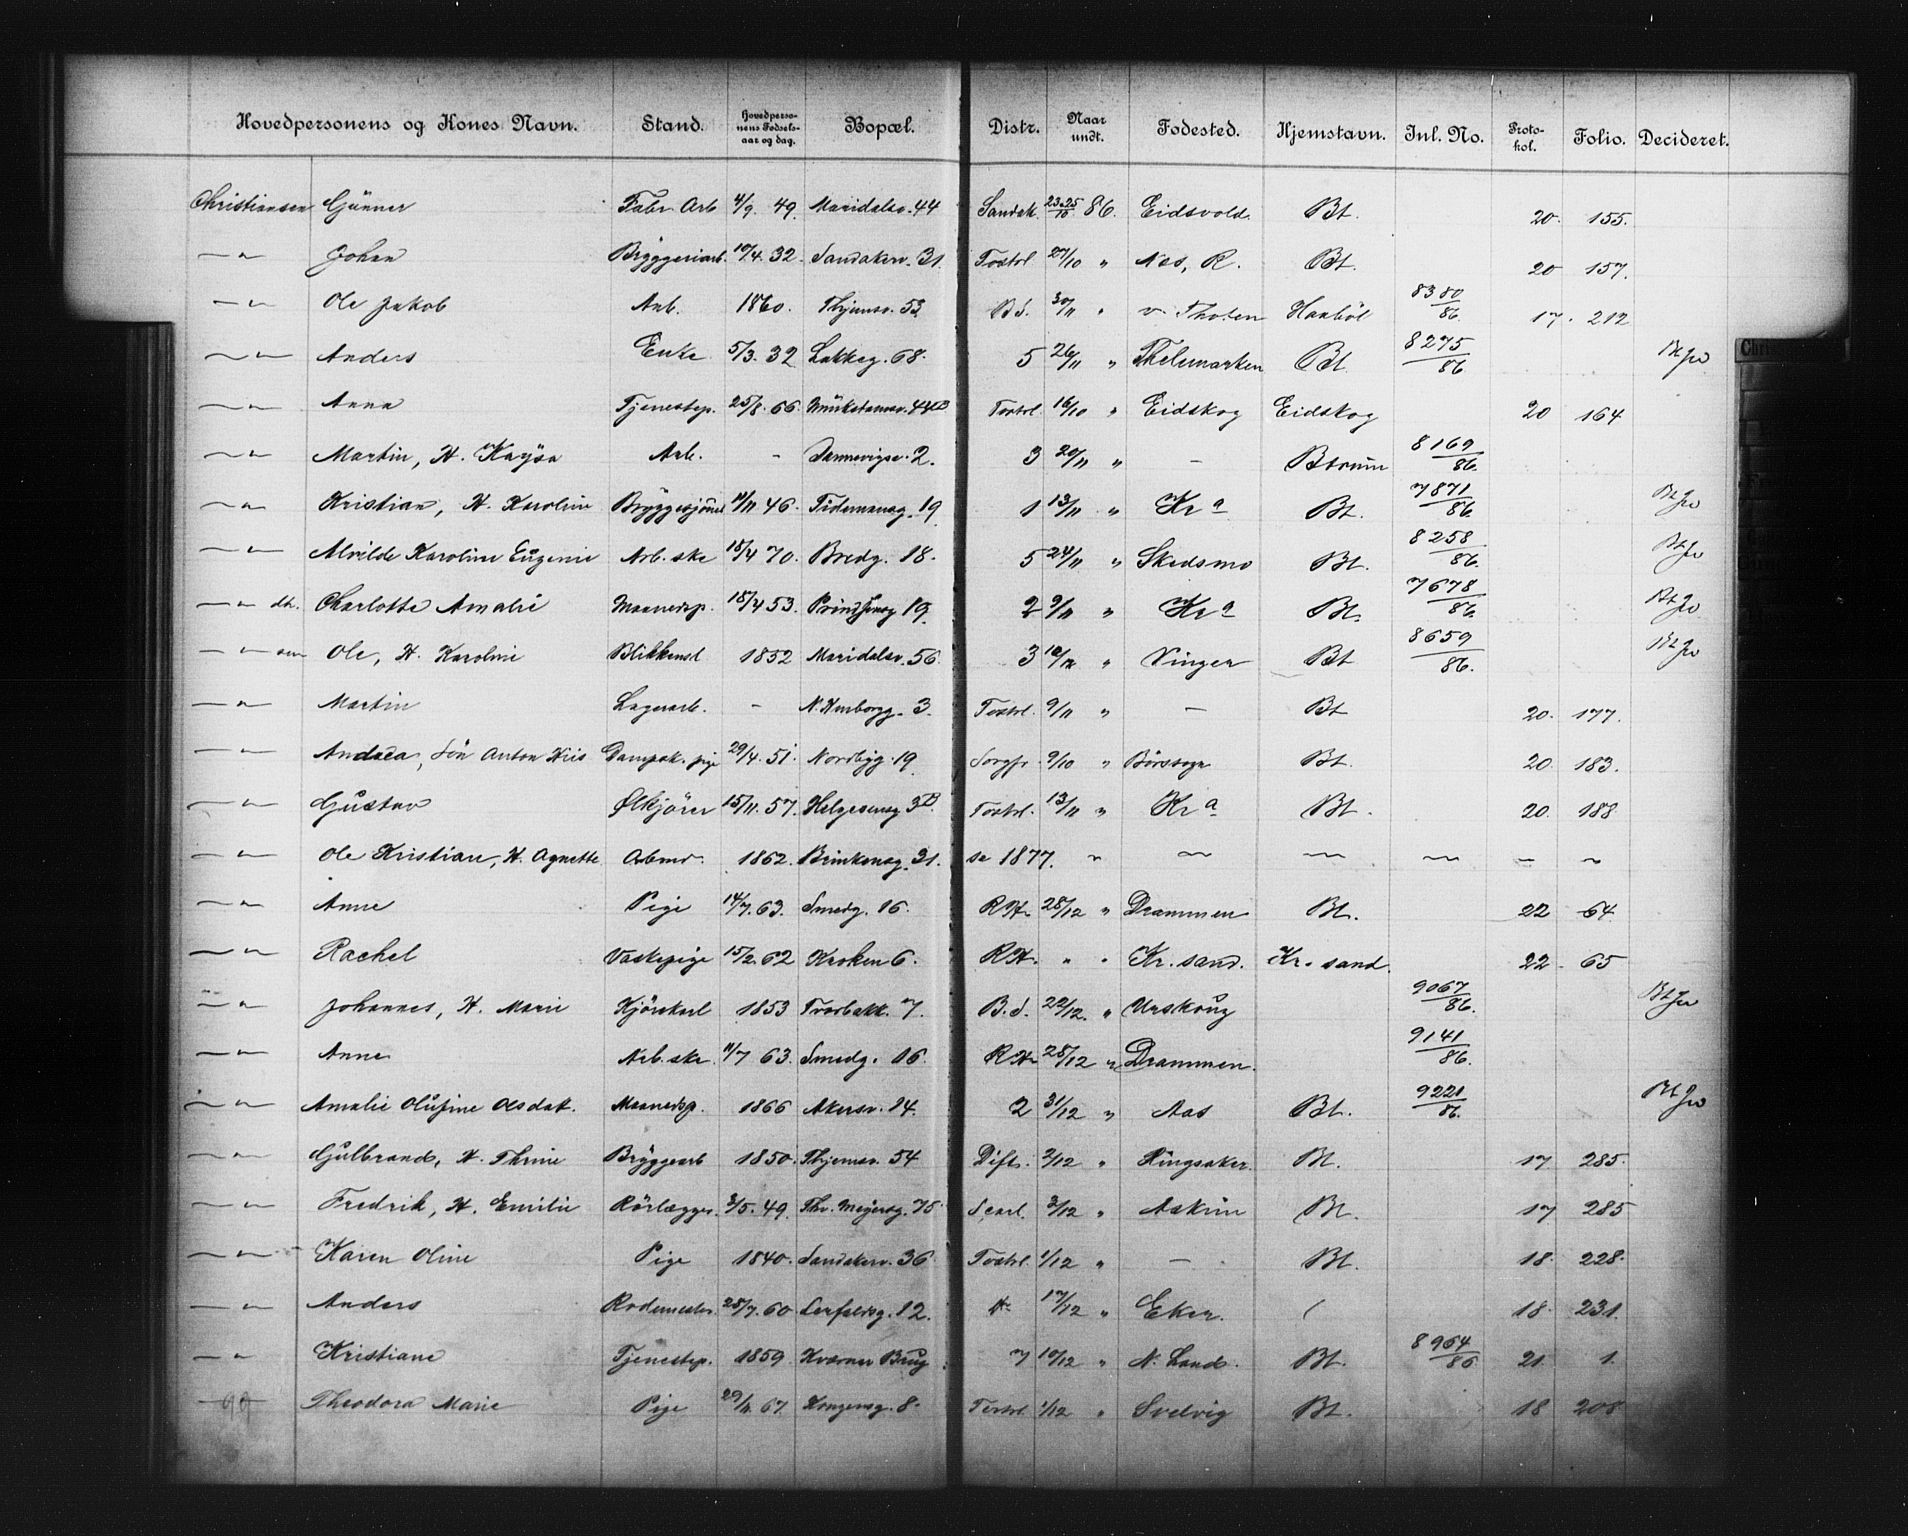 Hovedpersonens og Kones Navn. Stand. Hovedpersonens Fødselsaar og dag. Bopæl. Distr. Naar undt. Fødested. Hjemstavn. Inl. No. Protokol. Folio. Decideret.
Christiansen Günner Fabr. Arb 4/9. 49. Maridalsv. 44 Sandak. 23.25/10 86. Eidsvold. Bt. 20. 155.
—〃— Johan Bryggeriarb. 10/4. 32. Sandakerv. 31. Tostrl. 27/10 〃 Næs, R. Bt. 20 157.
—〃— Ole Jakob Arb. 1860. Thjemsv. 53. B.d. 30/11 〃 v. Thoten Haabøl 8380/86. 17. 212
—〃— Anders Enke 5/3. 32 Lakkeg. 68. 5 26/11 〃 Thelemarken Bt. 8275/86
—〃— Anna Tjenestep. 25/8. 66. Munkedamsv. 44B Tostrl. 16/10 〃 Eidskog Eidskog 20 164
—〃— Martin, H. Kaysa Arb. - Dannevigsv. 2. 3 20/11 〃 — Bærum 8169/86.
—〃— Kristian, H. Karoline 11/11 46. Tidemansg. 19 1 13/11 〃 Kr a Bt. 7871/86
—〃— Alvilde Karoline Eugenie Arb. ske 18/4 70. Bredg. 18. 5 24/11 〃 Skedsmo Bt. 8258/86.
—〃— Charlotte Amalie Maanedsp. 18/4 53. 19. 2 9/11 〃 Kr a Bt. 7678/86.
—〃— Ole, H. Karoline Blikkensl 1852 Maridalsv. 56. 3 10/12 〃 Vinger Bt 8659/86.
—〃— Martin Lagerarb. — 3. Tostrl. 9/11 〃 — Bt 20. 177.
—〃— Andrea, Søn Anton Kris Dampsk. pige 29/4. 51. Nordbyg. 19. Sorgfr. 9/10 〃 Bt. 20. 183.
—〃— Gustav Ølkjører 15/11. 57. Helgesensg 3B. Tostrl. 13/11 〃 Kr a Bt. 20. 188
—〃— Ole Kristian, H. Agnette Arbmd. 1862. Brinkensg. 31. se 1877. 〃 — — — — —
—〃— Anne Pige 14/7. 63. Smedg. 16. RH. 28/12 〃 Drammen Bt. 22 64.
—〃— Rachel Vaskepige 15/2. 62 Kroken 6. RH. 〃 〃 Kr. sand. Kr. sand. 22. 65
—〃— Johannes, H. Marie Kjørekarl 1853 Tvorbakk. 7. B.d. 22/12. 〃 Urskoug 9067/86.
—〃— Anne Arb. ske. 11/7 63. Smedg. 16. RH. 28/12 〃 Drammen. 9141/86.
—〃— Amalie Olufine Olsdat. Maanedsp. 1866 Akersv. 14. 2 31/12 〃 Aas Bt. 9221/86.
—〃— Gulbrand, H. Thrine Bryggearb 1850. Thjemsv. 54 Dift. 2/12 〃 Ringsaker. Bt. 17 285.
—〃— Fredrik, H. Emilie Rørlægger. 3/5. 49. Thv. Meyersg. 75 2/12 〃 Askim Bt. 17 285
—〃— Karen Oline Pige 1840. Sandakerv. 36 Tostrl. 1/12 〃 — Bt. 18. 228.
—〃— Anders Rodemester. 28/7. 60 12. 17/12 〃 Eker. 18. 231.
—〃— Kristiane Tjenestep. 1859. Kværner Brug 7 10/12 〃 N. Land. Bt. 8964/86 21. 1.
—〃— Theodora Marie Pige 29/11. 67. Kongensg. 8. Tostrl 1/12 〃 Svelvig Bt. 18 208